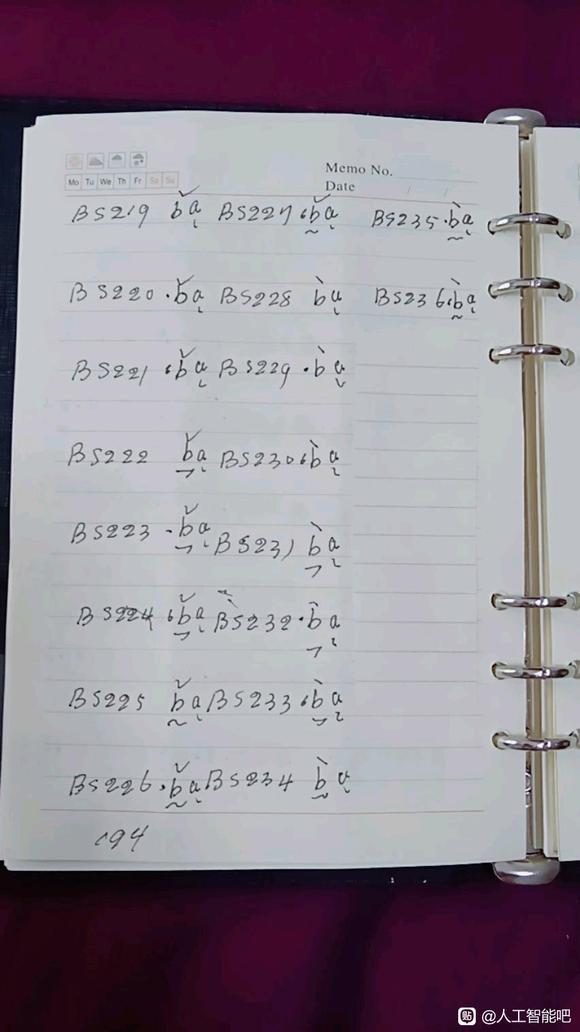 Memo No.
Date / /
Mo Tu We Th Fr Sa Su
BS219 b̌a BS227 b̌a BS235 ·b̀a
BS220 ·b̌a BS228 b̀a BS236 ·b̀a
BS221 b̌a BS229 ·b̀a
BS222 b̌a BS230 b̀a
BS223 ·b̌a BS231 b̀a
BS224 b̌a BS232 ·b̀a
BS225 b̌a BS233 b̀a
BS226 ·b̌a BS234 b̀a
194
贴 @人工智能吧